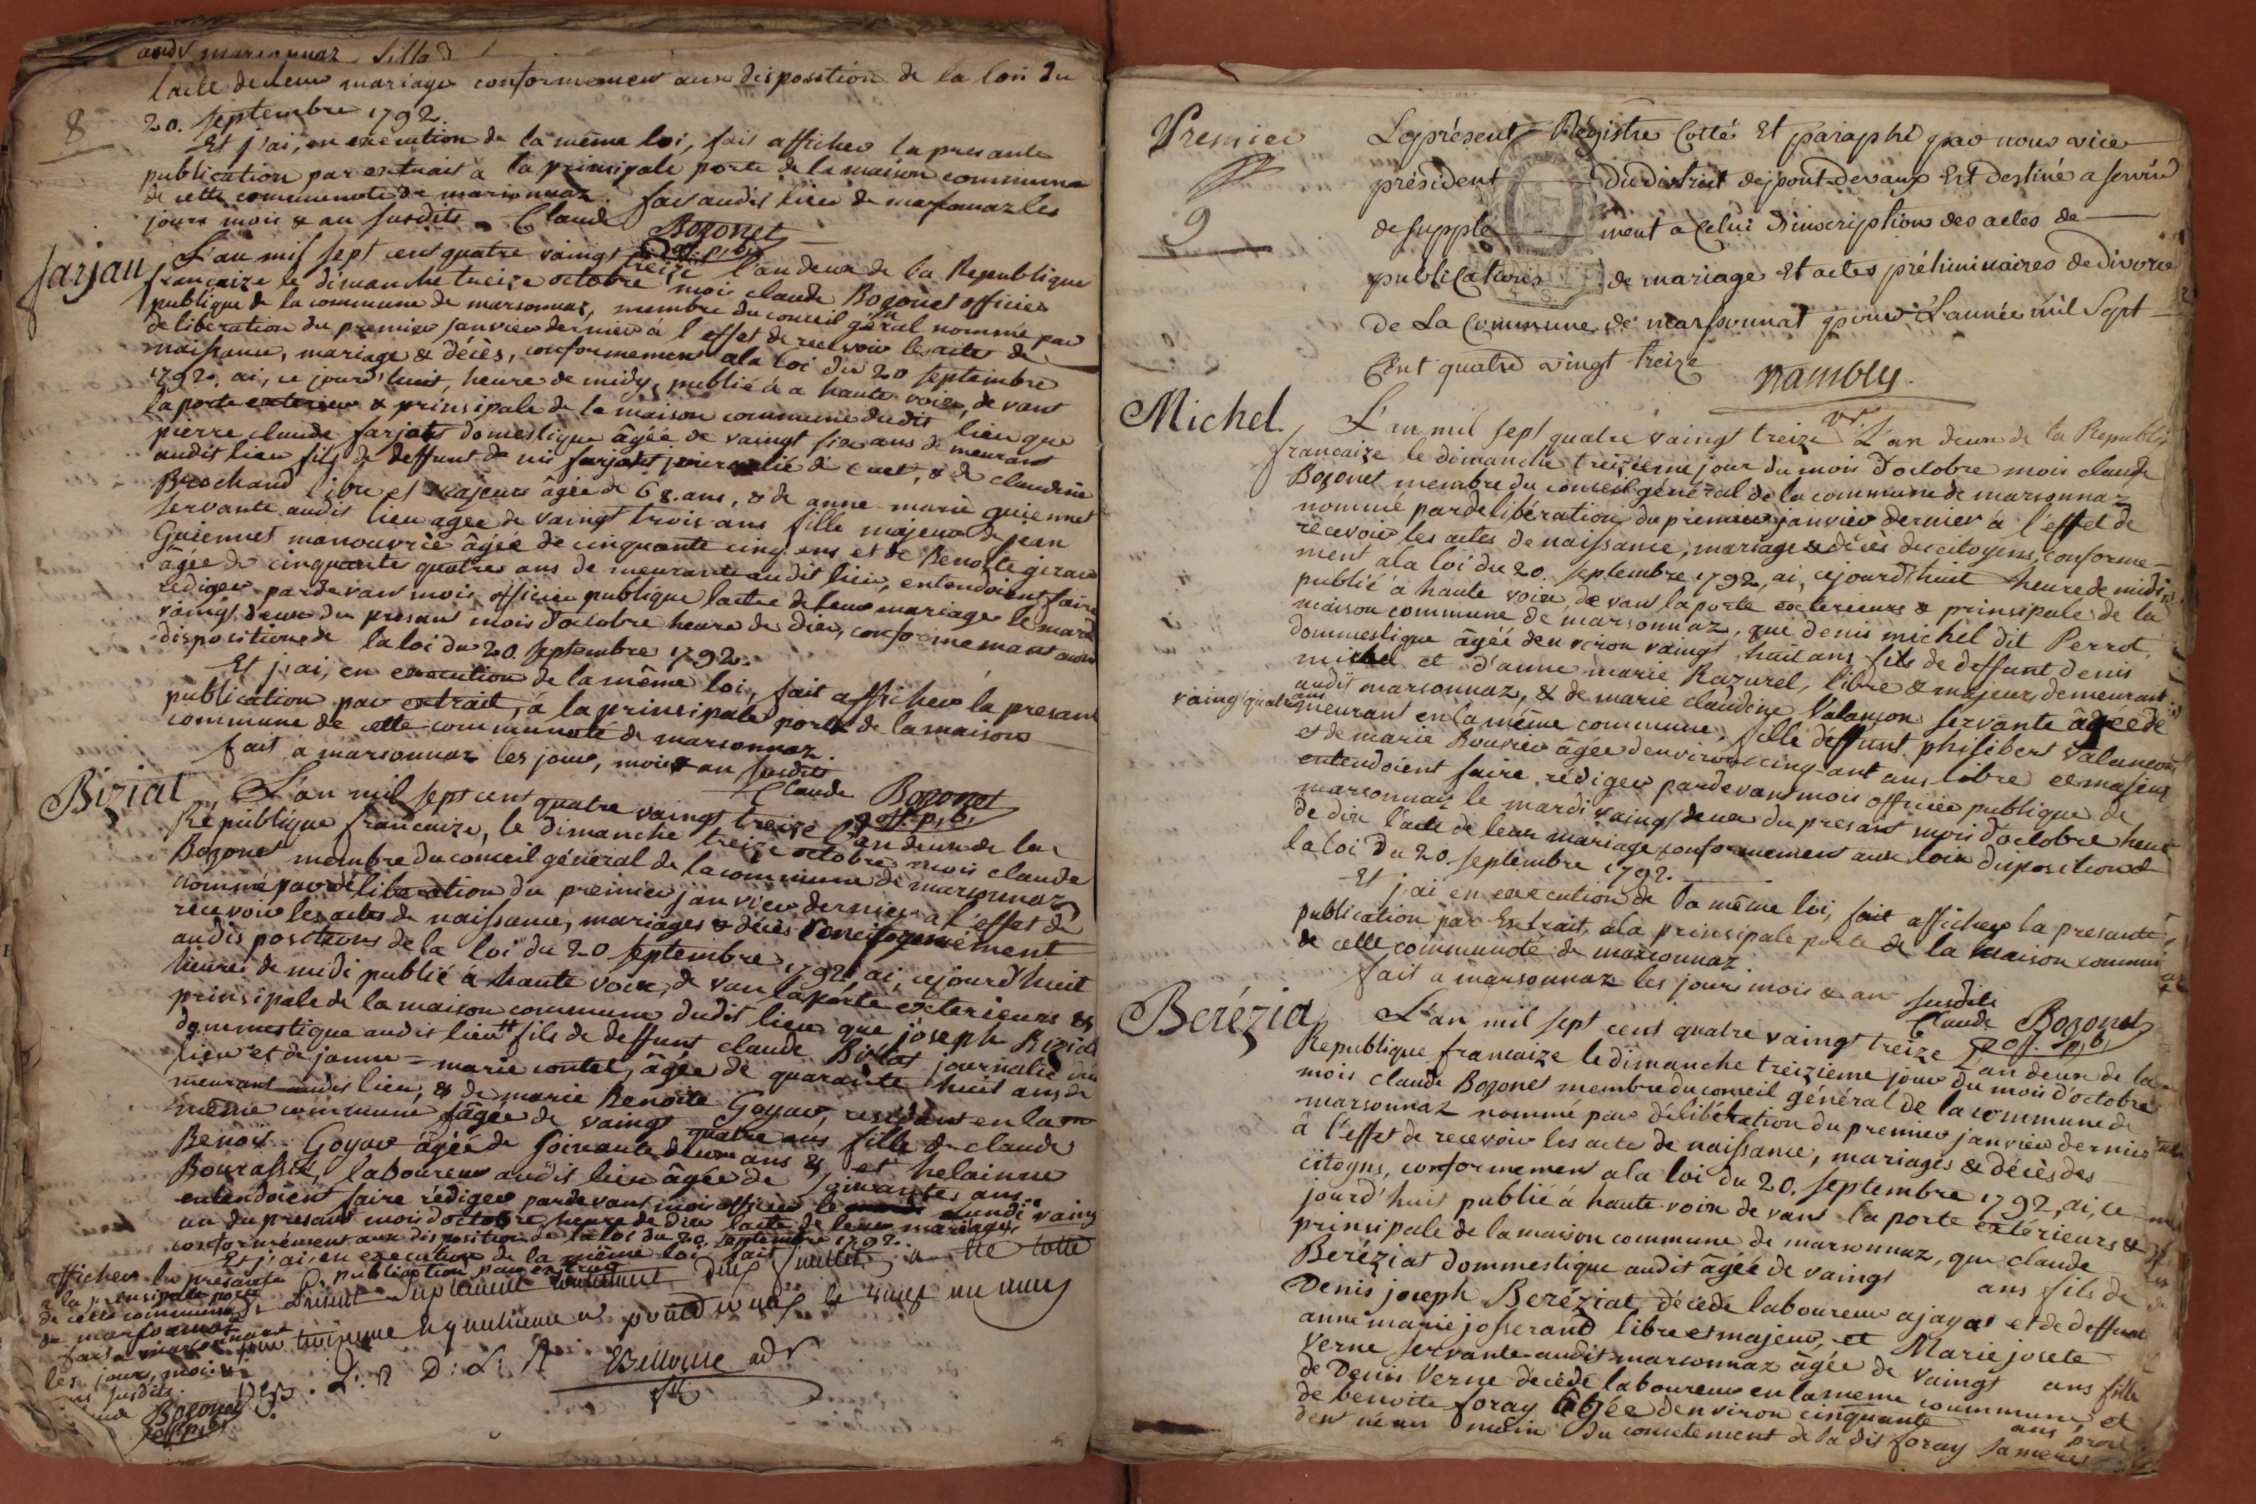 audit marsonnaz fille d
lacte de leur mariage conformement aux disposition de la loi du
20. septembre 1792.
8
Et j'ai, en execution de la même loi, fait afficher la presante
publication par extrait a la principale porte de la maison commune
de cette communeté de marsonnaz. fait audit lieu de marsonnaz les
jours mois & an susdits. Claude Bozonet
off. p.b.
farjau L'an mil sept cent quatre vaingt treize l'an deux de la Republique
francaize le dimanche treize octobre moi claude Bozonet officier
publique de la commune de marsonnaz, membre du conseil géral nommé par
deliberation du premier janvier dernier a l'effet de recevoir les actes de
naissance, mariage & décès, conformement a la loi du 20 septembre
1792, ai, ce jourd'huit, heure de midy, publié à a haute voix, devant
la porte exterieur & prinsipale de la maison commune dudit lieu que
pierre claude farjats domestique âgée de vaingt six ans demeurant
audit lieu fils de deffunt denis farjats journalié de cuet, & de claudine
Brochand libre et majeur âgée de 68. ans, & de anne marie guiennet
servante audit lieu agée de vaingt trois ans fille majeur de jean
Guiennet manouvrié âgée de cinquante cinq ans et de Benoite giraud
âgée de cinquante quatres ans demeurant audit lieu, entendoient faire
rediger pardevant mois officier publique lactee de leur mariage le mardi
vaingt deux du presant mois d'octobre heure de dix, conformemant aux
dispositions de la loi du 20. septembre 1792.
Et j'ai, en execution de la même loi, fait afficher la presant
publication par extrait, à la prinsipale porte de la maison
commune de cette communeté de marsonnaz.
fait a marsonnaz les jour, mois & an susdits
Claude Bozonet
off. p.b.
Biziat L'an mil sept cent quatre vaingt treize l'an deux de la
Republique francaize, le dimanche treize octobre mois claude
Bozonet membre du conseil général de la commune de marsonnaz
nommé par déliberation du premier janvier dernier a l'effet de
recevoir les actes de naissance, mariages & décès
audispositions de la loi du 20 septembre 1792, ai, cejourd'huit
heures de midi publié a haute voix, devant la porte exterieurs &
prinsipale de la maison commune dudit lieu que joseph Biziat
dommestique audit lieu fils de deffunt claude Biziat journalié
lieu et de janne-marie contet, âgée de quarante huit ans de
meurant audit lieu, & de marie Benoite Goyar, residant en la
même commune âgée de vaingt quatre ans fille de claude
Benoit Goyar âgée de soixante deux ans & et helainne
Bourassat, laboureur audit lieu âgée de soixantes ans
entendoient faire rédiger pardevant mois officier le lundi vaing
un du presant mois d'octobre, heure de dix lacte de leur mariage,
conformément aux disposition de la loi du 20. septembre 1792.
Et j'ai, en execution de la même loi, fait
afficher la presante publication par extrait
a la prinsipale porte
de cette communeté
de marsonnaz
fait a marsonnaz
les jours, mois &
an susdits.
Bozonet
off. p.b.
Premier
9
Le présent Régistre Cotté Et paraphé par nous vice
président du district de pont-devaux Est destiné a servir
de supplé ment a Celui d'inscription des actes de
publicatures de mariage Et actes préliminaires de divorce
De La Commune de marsonnat pour L'année mil Sept
Cent quatre vingt treize
Michel L'an mil sept quatre vaingt treize L'an deux de la Republi
francaize le dimanche treizième jour du mois d'octobre mois claude
Bozonet membre du conseil général de la commune de marsonnaz
nommé par delibération du premier janvier dernier à l'effet de
recevoir les actes de naissance, mariage & décès des citoyens, conforme-
ment a la loi du 20. septembre 1792, ai, cejourd'huit heure de midi,
publié à haute voix, devant la porte exterieurs & prinsipale de la
maison commune de marsonnaz, que denis michel dit Perrot,
dommestique âgée denviron vaingt huit ans fils de deffunt denis
michel et d'anne marie Razurel, libre & majeur, demeurant
audit marsonnaz, & de marie claudine Valançon servante âgée de
vaingt quatre ans
meurant en la même commune, fille deffunt philibert Valançon
et de marie Bouvier âgée denviron cinq-ant ans libre et majeur
entendoient faire rédiger pardevant mois officier publique de
marsonnaz le mardi vaingt deux du presant mois d'octobre heure
de dix l'acte de leur mariage conformement aux loix disposition de
la loi du 20. septembre 1792.
Et j'ai en execution de la même loi, fait afficher la presante
publication par Extrait, a la prinsipale porte de la maison commun
de cette communoté de marsonnaz
fait a marsonnaz les jours mois & an susdits
Claude Bozonet
off. p.b.
Berézia L'an mil sept cent quatre vaingt treize L'an deux de la
Republique francaize le dimanche treizieme jour du mois d'octobre
mois claude Bozonet membre du conseil général de la commune de
marsonnaz nommé par délibération du premier janvier dernier
à l'effet de recevoir les acte de naissance, mariages & décès des
citoyns, conformement a la loi du 20. septembre 1792, ai, ce
jourd'huit publié à haute voix devant la porte extérieurs &
prinsipale de la maison commune de marsonnaz, que claude
Beréziat dommestique audit âgée de vaingt ans fils de
Denis joseph Beréziat décédé laboureur a jayat et de deffunt
anne marie josserand libre et majeur, et Marie josete
Verne servante audit marsonnaz âgée de vaingt ans fille
de Denis Verne décédé laboureur en la meme commune, et
de benoite foray âgée denviron cinquante ans
du consetement de la dit foray sa mere